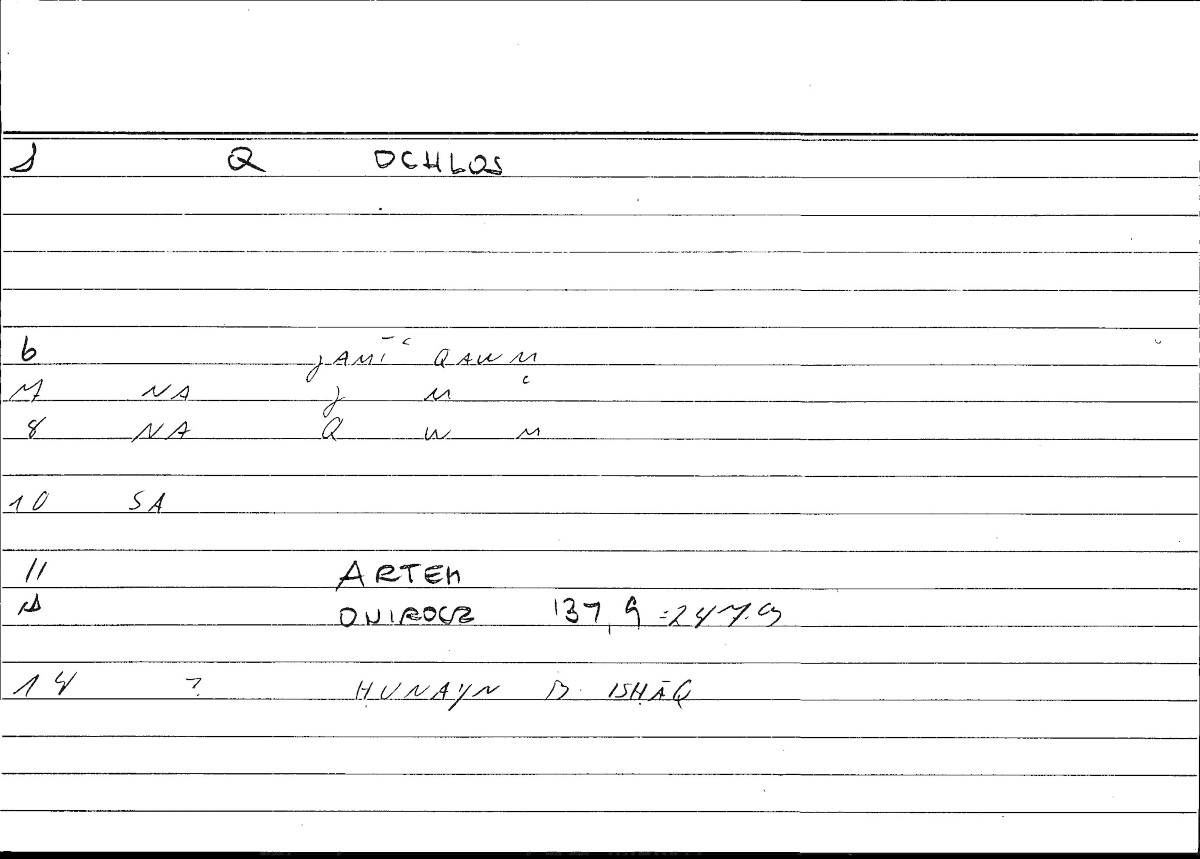 1 Q OCHLOS
6 JAMĪʿ QAWM
7 NA J M ʿ
8 NA Q W M
10 SA
11 ARTEM
12 ONIROCR 137,9 =247.9
14 ? ḤUNAYN B. ISḤĀQ